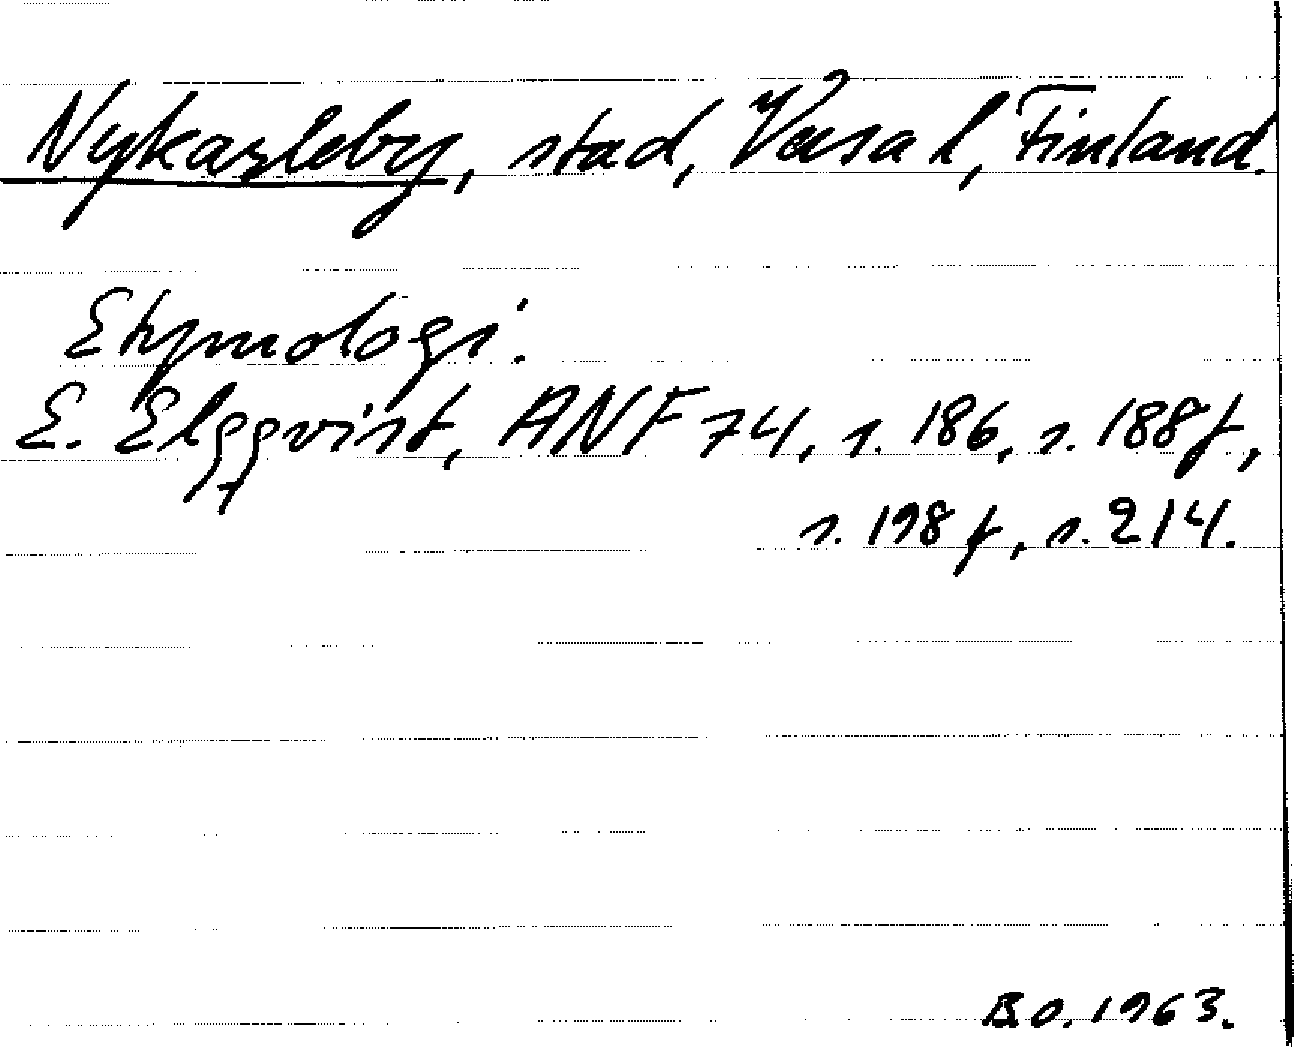 Nykarleby, stad, Vasa l, Finland.
Etymologi.
E. Elgqvist, ANF 74, s. 186, s. 188f,
s. 198f, s. 214.
B.O. 1963.